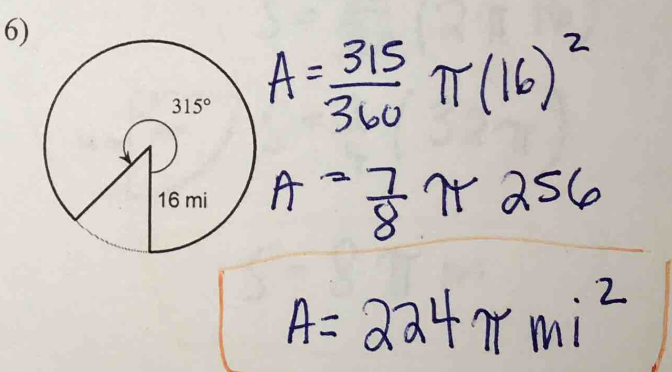 6)
315°
16 mi
A = 315/360 π(16)²
A = 7/8 π 256
A = 224 π mi²